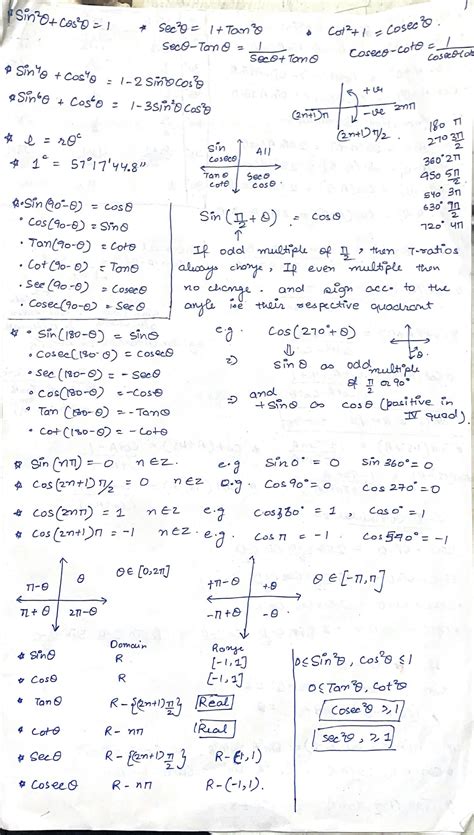 * Sin²θ + Cos²θ = 1 * Sec²θ = 1 + Tan²θ * Cot²+1 = Cosec²θ.
Secθ - Tanθ = 1/(Secθ + Tanθ) Cosecθ - cotθ = 1/(cosecθ+cot
* Sin⁴θ + Cos⁴θ = 1 - 2 Sin²θ Cos²θ
* Sin⁶θ + Cos⁶θ = 1 - 3 Sin²θ Cos²θ
+ve
(2n+1)π -ve 2nπ
(2n+1)π/2
* l = rθᶜ
* 1ᶜ = 57°17'44.8"
Sin cosec All
Tanθ cotθ Secθ cosθ
180 π
270 3π/2
360° 2π
450 5π/2
540° 3π
630° 7π/2
720° 4π
* Sin(90°-θ) = cosθ
• Cos(90-θ) = Sinθ
• Tan(90-θ) = Cotθ
• Cot(90-θ) = Tanθ
• Sec(90-θ) = Cosecθ
• Cosec(90-θ) = Secθ
Sin(π/2 + θ) = cosθ
If odd multiple of π/2, then T-ratios
always change, If even multiple then
no change. and sign acc to the
angle i.e their respective quadrant
* • Sin(180-θ) = Sinθ
• Cosec(180-θ) = cosecθ
• Sec(180-θ) = -Secθ
• Cos(180-θ) = -Cosθ
• Tan(180-θ) = -Tanθ
• Cot(180-θ) = -Cotθ
e.g. Cos(270°+θ)
⇒ Sinθ as odd multiple of π/2 or 90°
⇒ and +Sinθ as cosθ (positive in IV quad).
* Sin(nπ) = 0 n∈z. e.g Sin0° = 0 Sin360° = 0
* Cos(2n+1)π/2 = 0 n∈z e.g. Cos90° = 0 Cos270° = 0
* Cos(2nπ) = 1 n∈z e.g Cos360° = 1, Cos0° = 1
* Cos(2n+1)π = -1 n∈z. e.g. Cosπ = -1. Cos540° = -1
π-θ θ θ∈[0,2π]
π+θ 2π-θ
+π-θ +θ θ∈[-π,π]
-π+θ -θ
Domain Range
* Sinθ R [-1,1]
* Cosθ R [-1,1]
* Tanθ R-{(2n+1)π/2} Real
* Cotθ R-nπ Real
* Secθ R-{(2n+1)π/2} R-(-1,1)
* Cosecθ R-nπ R-(-1,1).
0≤Sin²θ, Cos²θ≤1
0≤Tan²θ, Cot²θ
Cosec²θ ≥1
Sec²θ, ≥1